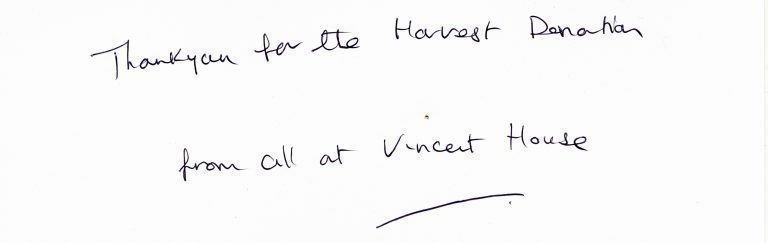 Thankyou for the Harvest Donation
from all at Vincent House